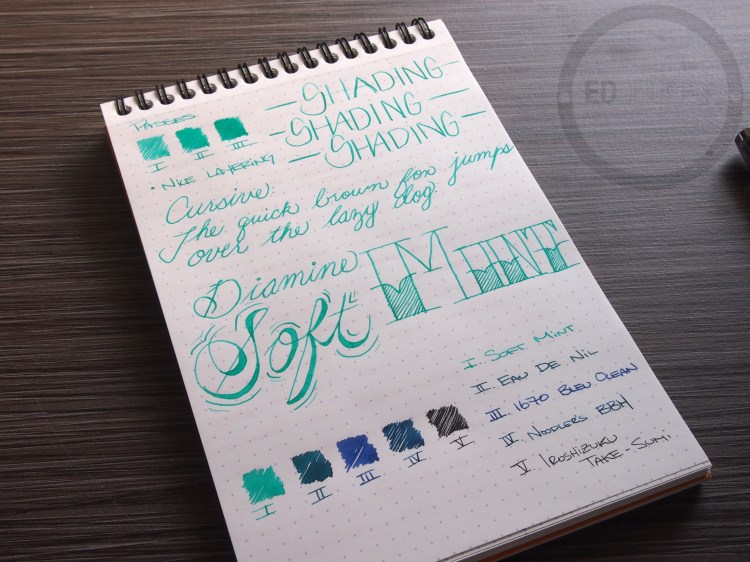 PASSES
I II III
• NICE LAYERING
SHADING
SHADING
SHADING
Cursive:
The quick brown fox jumps
over the lazy dog.
Diamine
"Soft Mint"
I. SOFT MINT
II. EAU DE NIL
III. 1670 BLEU OCEAN
IV. NOODLERS BBH
V. IROSHIZUKU
TAKE-SUMI
I II III IV V
ED